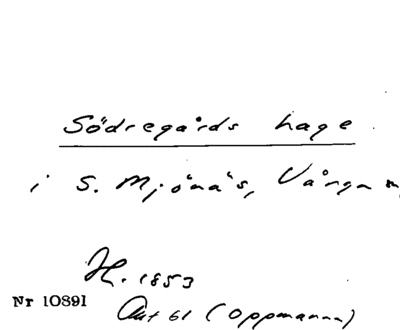 Södregårds hage
i S. Mjönäs, Vånga
H. 1853
Nr 10891
Akt 61 (Oppmanna)